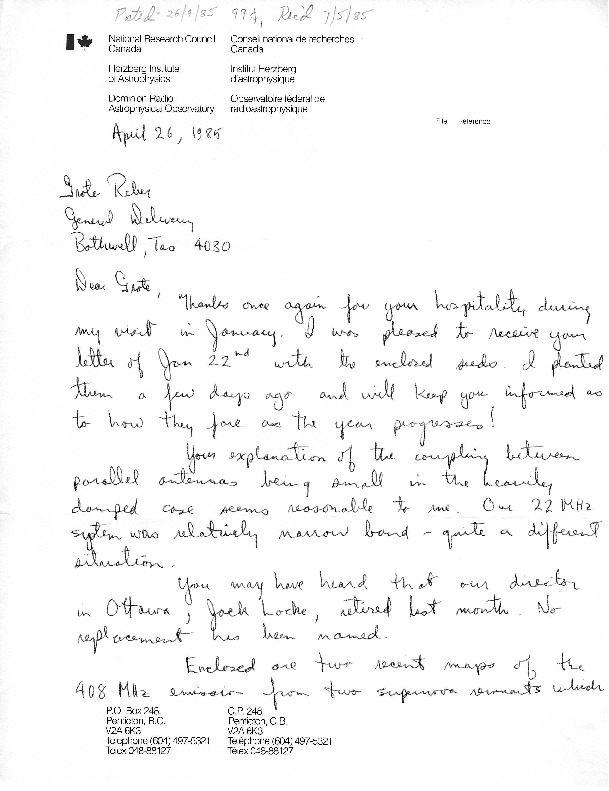 Posted: 26/4/85 99¢, Rec'd 7/5/85
National Research Council Canada
Conseil national de recherches Canada
Herzberg Institute of Astrophysics
Institut Herzberg d'astrophysique
Dominion Radio Astrophysical Observatory
Observatoire fédéral de radioastrophysique
File Reference
April 26, 1985
Grote Reber
General Delivery
Bothwell, Tas 4030
Dear Grote,
Thanks once again for your hospitality during
my visit in January. I was pleased to receive your
letter of Jan 22nd with the enclosed seeds. I planted
them a few days ago and will keep you informed as
to how they fare as the year progresses!
Your explanation of the coupling between
parallel antennas being small in the heavily
damped case seems reasonable to me. Our 22 MHz
system was relatively narrow band - quite a different
situation.
You may have heard that our director
in Ottawa, Jack Locke, retired last month. No
replacement has been named.
Enclosed are two recent maps of the
408 MHz emission from two supernova remnants which
P.O. Box 248,
Penticton, B.C.
V2A 6K3
Telephone (604) 497-5321
Telex 048-88127
C.P. 248,
Penticton, C.B.
V2A 6K3
Téléphone (604) 497-5321
Télex 048-88127